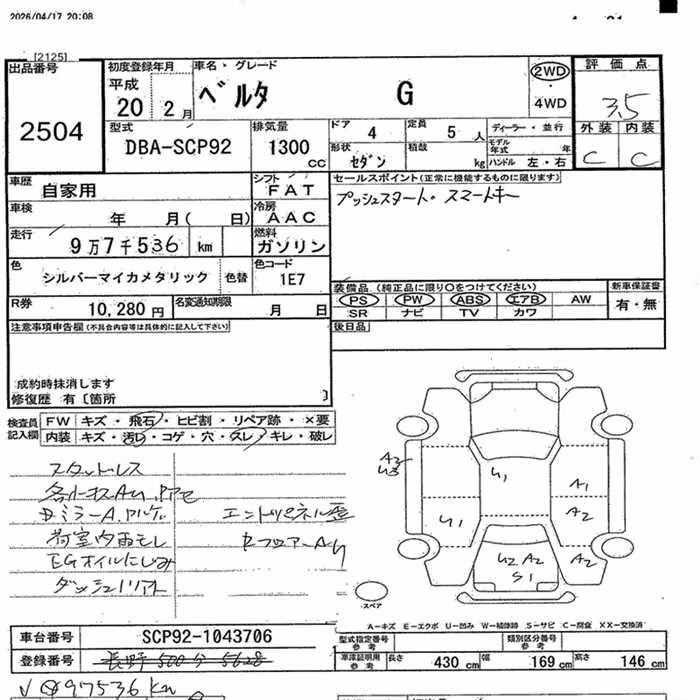 2026/04/17 20:08
[2125]
出品番号
2504
初度登録年月
平成
20 2月
車名・グレード
ベルタ G
2WD
4WD
評価点
3.5
外装 内装
C C
型式
DBA-SCP92
排気量
1300 CC
ドア 4
定員 5人
ディーラー・並行
モデル年式 年
形状 セダン
積載 kg
ハンドル 左・右
車歴 自家用
シフト FAT
車検 年 月( 日)
冷房 AAC
走行 9万7千536 km
燃料 ガソリン
色 シルバーマイカメタリック 色替
色コード 1E7
R券 10,280円
名変通知期限 月 日
セールスポイント(正常に機能するものに限ります)
プッシュスタート・スマートキー
装備品(純正品に限り○をつけてください)
新車保証書
PS PW ABS エアB AW
SR ナビ TV カワ
有・無
注意事項申告欄(不具合内容等は具体的に記入して下さい)
後日品
成約時抹消します
修復歴 有〔箇所 〕
検査員記入欄
FW キズ・飛石・ヒビ割・リペア跡・×要
内装 キズ・汚レ・コゲ・穴・スレ・キレ・破レ
スタットレス
エンドパネル歪
荷室内雨モレ
EGオイルにじみ
A2
U3
U1
A1
A2
U1
U2 A2
S1
A2
スペア
A-キズ E-エクボ U-凹み W-補修跡 S-サビ C-腐食 XX-交換済
車台番号 SCP92-1043706
登録番号 長野 500 5628
型式指定番号 参考
類別区分番号 参考
車庫証明用 参考 長さ 430 cm 幅 169 cm 高さ 146 cm
97536 km